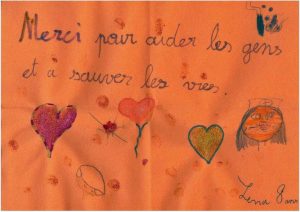 Merci pour aider les gens
et a sauver les vies.
Lena 8 ans